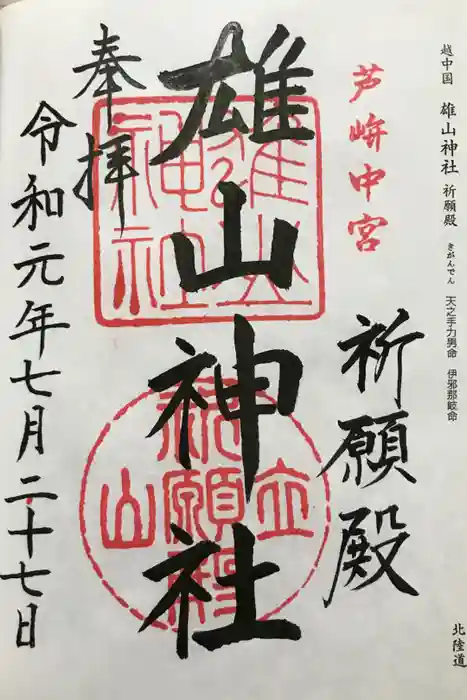 越中国 雄山神社 祈願殿 きがんでん 天之手力男命 伊邪那岐命
北陸道
芦峅中宮
祈願殿
雄山神社
奉拝
令和元年七月二十七日
雄山神社
立山
祈願殿